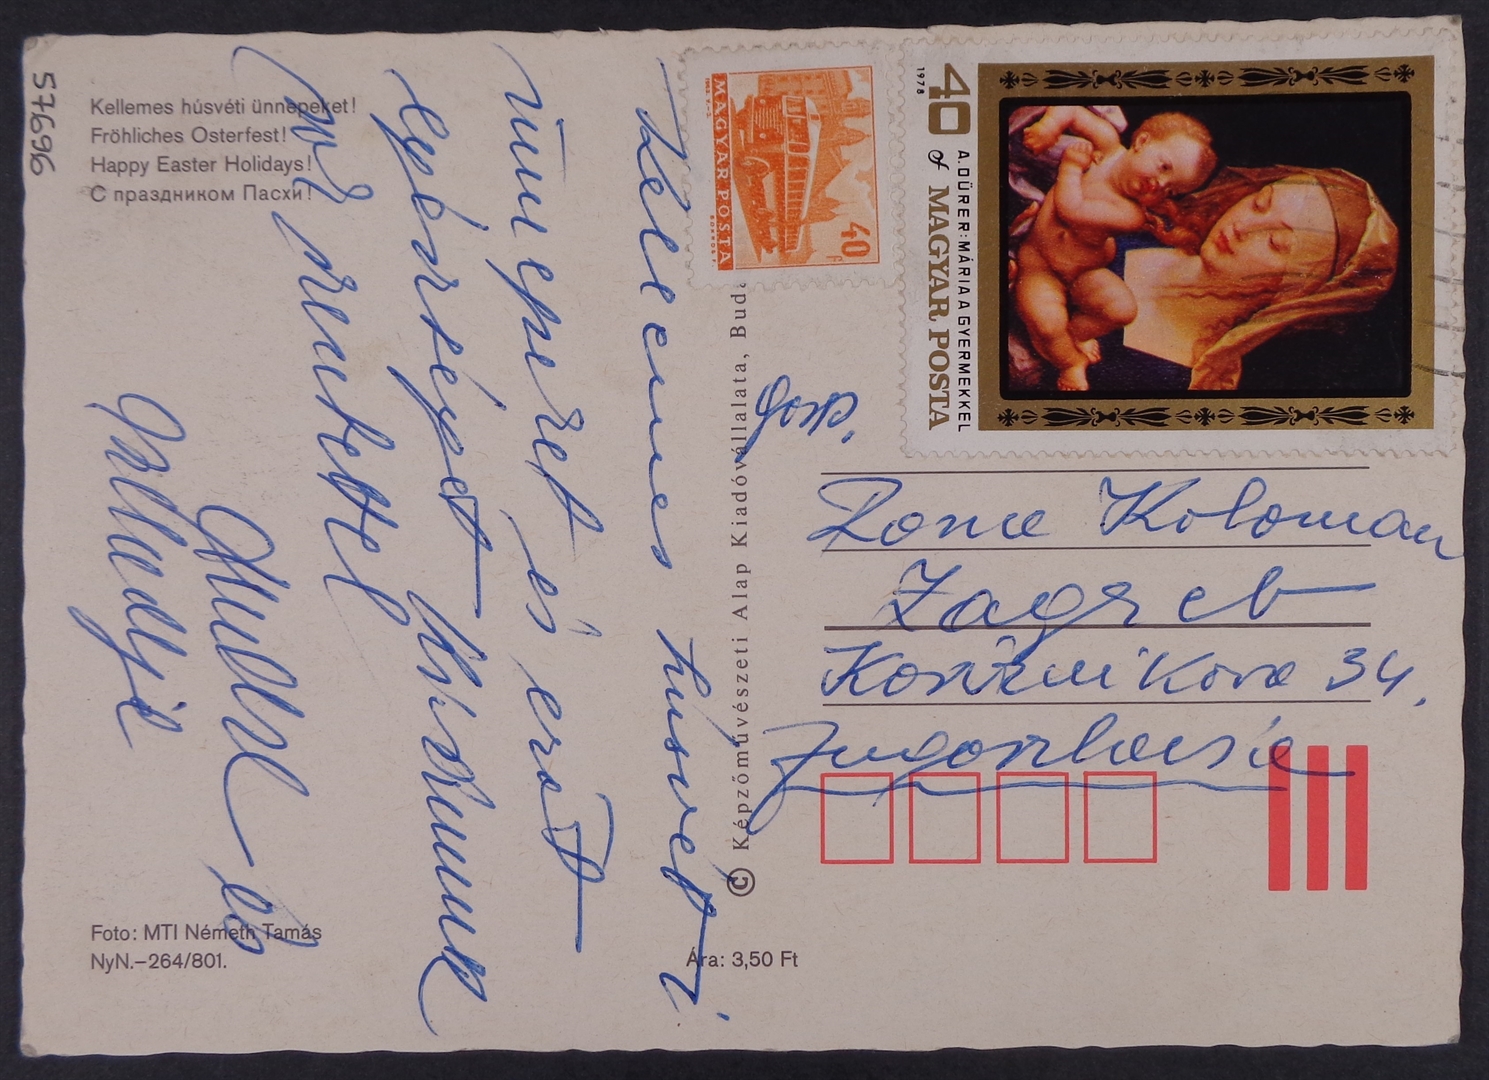 57696
Kellemes húsvéti ünnepeket!
Fröhliches Osterfest!
Happy Easter Holidays!
С праздником Пасхи!
Kellemes húsvéti
ünnepeket és erőt
egészséget kívánunk
sok szeretettel
és
Foto: MTI Németh Tamás
NyN.–264/801.
Ára: 3,50 Ft
© Képzőművészeti Alap Kiadóvállalata, Buda
MAGYAR POSTA
40 f
1978
40 f
A. DÜRER: MÁRIA A GYERMEKKEL
MAGYAR POSTA
gosp.
Koloman
Zagreb
34.